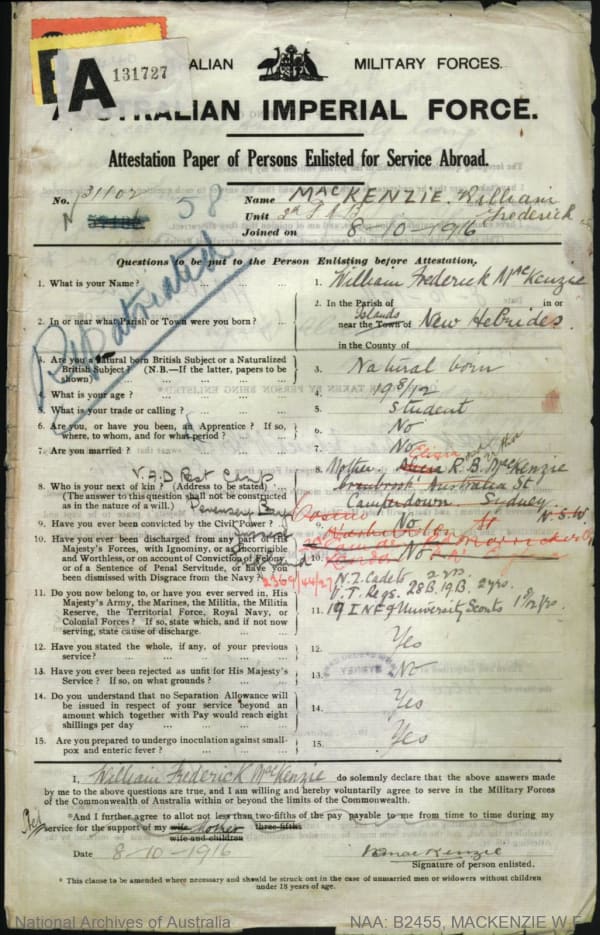 A 131727
ALIAN MILITARY FORCES.
AUSTRALIAN IMPERIAL FORCE.
Attestation Paper of Persons Enlisted for Service Abroad.
No. 31102 58
N
Name MACKENZIE, William Frederick
Unit
Joined on 8-10-1916
Questions to be put to the Person Enlisting before Attestation.
Repatriated
1. What is your Name? ... 1. William Frederick MacKenzie
2. In or near what Parish or Town were you born? ... 2. In the Parish of in or
near the Town of Islands New Hebrides.
in the County of
3. Are you a natural born British Subject or a Naturalized British Subject? (N.B.—If the latter, papers to be shown) 3. Natural born
4. What is your age? 4. 19 8/12
5. What is your trade or calling? 5. Student
6. Are you, or have you been, an Apprentice? If so, where, to whom, and for what period? 6. No
7. Are you married? 7. No
8. Who is your next of kin? (Address to be stated) 8. Mother. R. B. MacKenzie
V.A.D Rest Camp
(The answer to this question shall not be construed as in the nature of a will.)
Australia St
Camperdown. Sydney.
N.S.W.
9. Have you ever been convicted by the Civil Power? 9. No
10. Have you ever been discharged from any part of His Majesty's Forces, with Ignominy, or as Incorrigible and Worthless, or on account of Conviction of Felony, or of a Sentence of Penal Servitude, or have you been dismissed with Disgrace from the Navy? 10. No
2369/44/27
11. Do you now belong to, or have you ever served in, His Majesty's Army, the Marines, the Militia, the Militia Reserve, the Territorial Force, Royal Navy, or Colonial Forces? If so, state which, and if not now serving, state cause of discharge. 11. N.Z. Cadets 2 yrs.
V.T. Regs. 28B, 19B. 2 yrs.
University Scouts
12. Have you stated the whole, if any, of your previous service? 12. Yes
13. Have you ever been rejected as unfit for His Majesty's Service? If so, on what grounds? 13. No
14. Do you understand that no Separation Allowance will be issued in respect of your service beyond an amount which together with Pay would reach eight shillings per day 14. Yes
15. Are you prepared to undergo inoculation against small-pox and enteric fever? 15. Yes
I, William Frederick MacKenzie do solemnly declare that the above answers made
by me to the above questions are true, and I am willing and hereby voluntarily agree to serve in the Military Forces
of the Commonwealth of Australia within or beyond the limits of the Commonwealth.
*And I further agree to allot not less than two-fifths of the pay payable to me from time to time during my
service for the support of my wife mother three-fifths
wife and children
Date 8-10-1916 W F MacKenzie
Signature of person enlisted.
* This clause to be amended where necessary and should be struck out in the case of unmarried men or widowers without children
under 18 years of age.
National Archives of Australia NAA: B2455, MACKENZIE W F